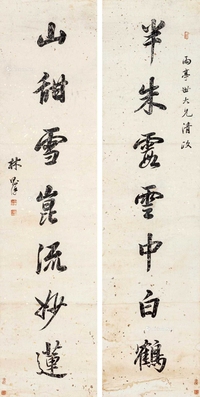 雨亭世大兄清政
半朱霞雲中白鶴
山甜雪崑流妙蓮
林